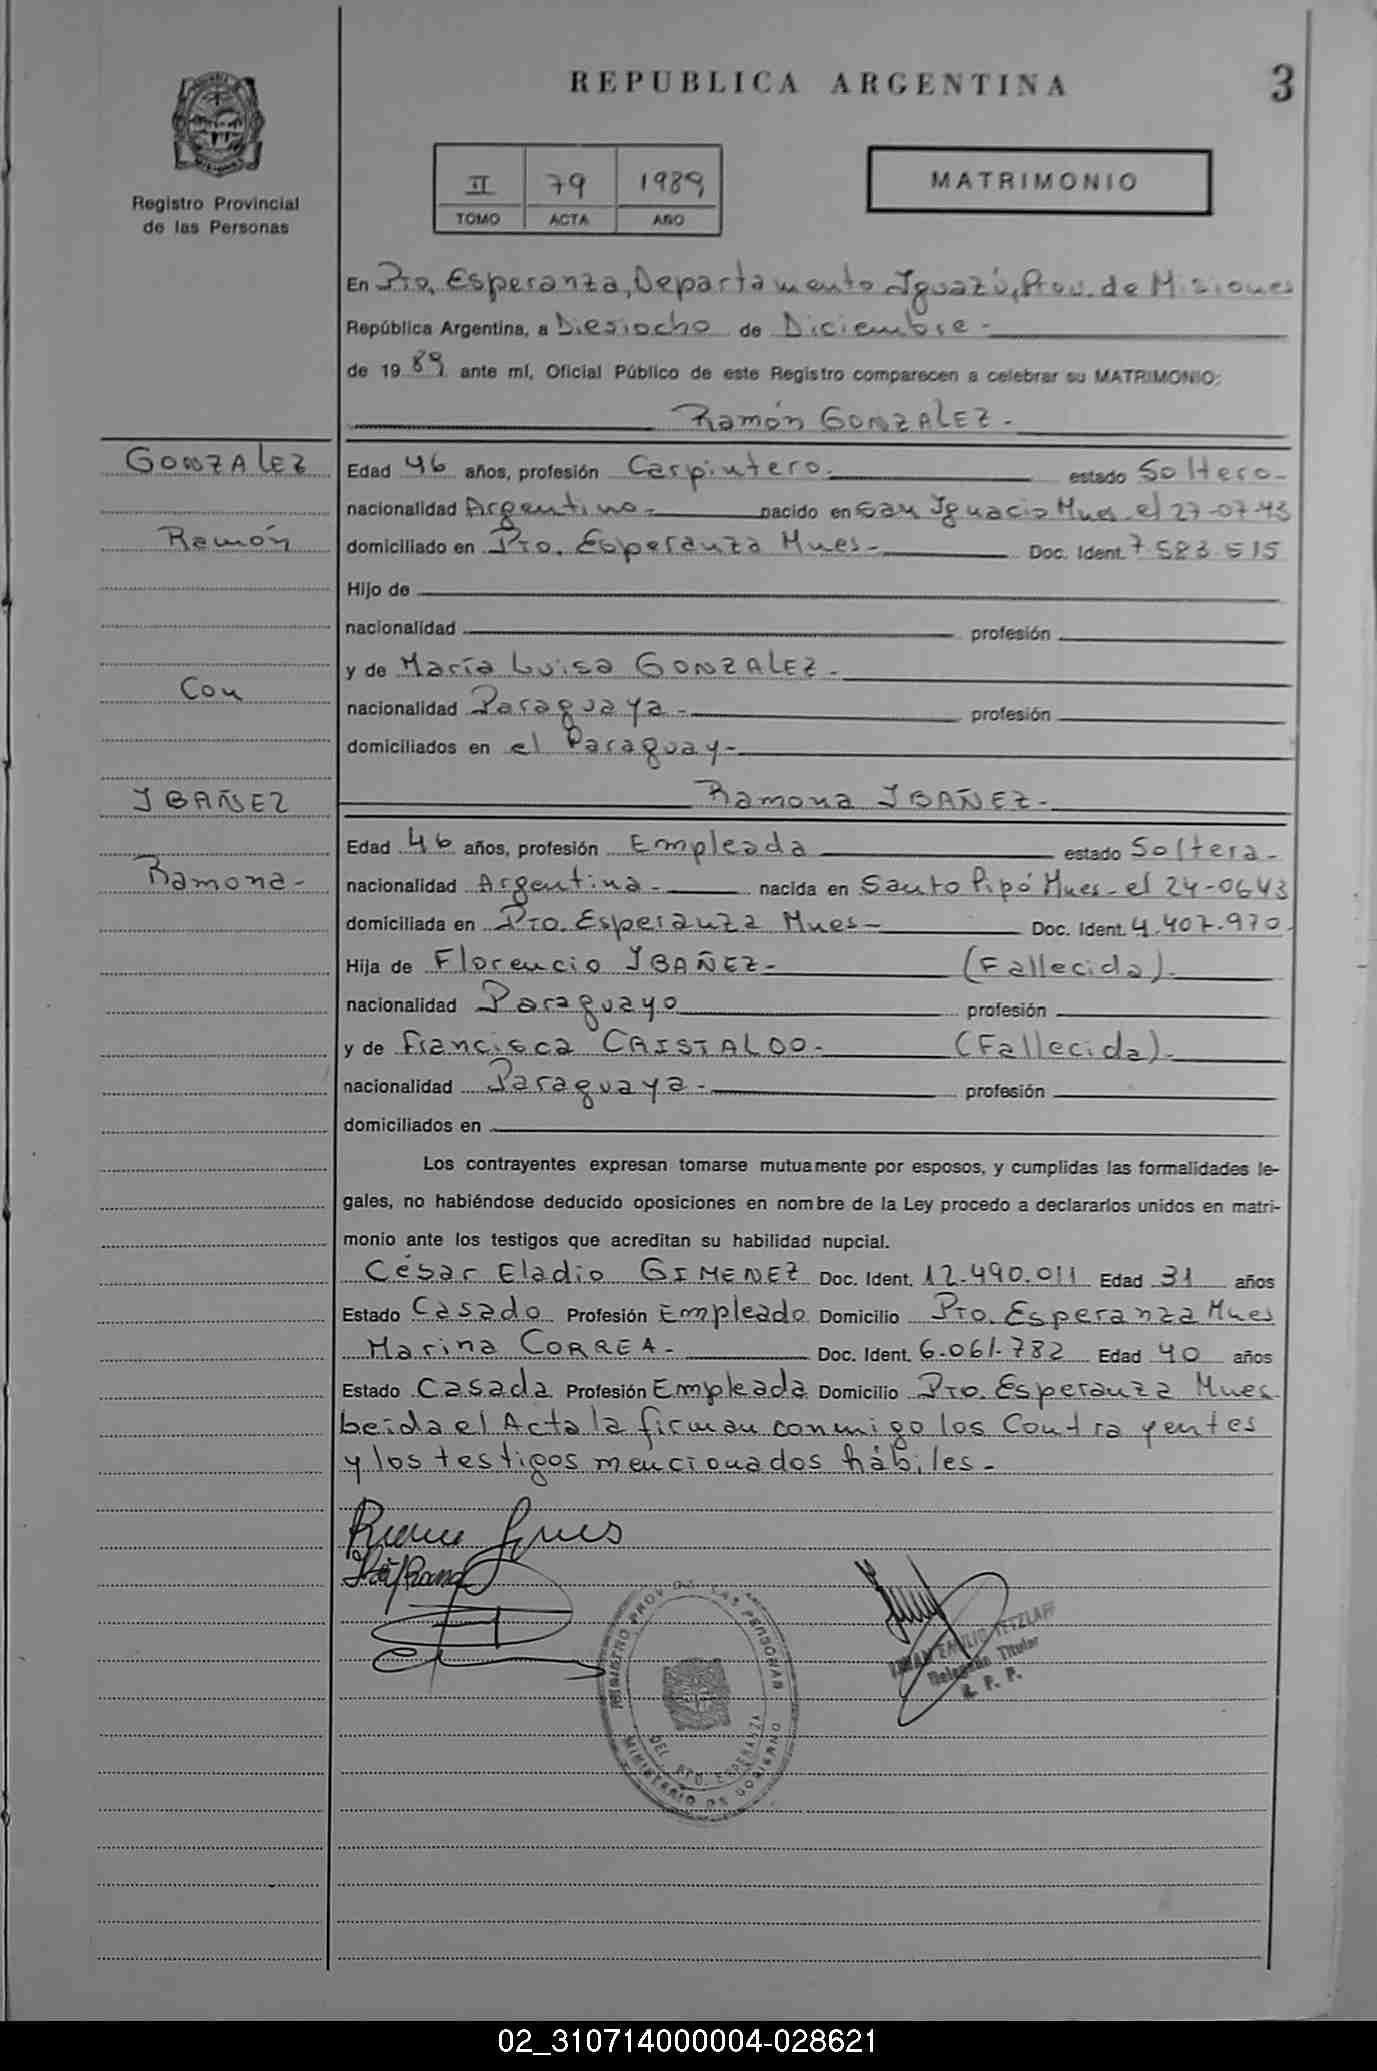 REPUBLICA ARGENTINA
3
Registro Provincial
de las Personas
II 79 1989
TOMO ACTA AÑO
MATRIMONIO
En Pto. Esperanza, Departamento Iguazú, Prov. de Misiones
República Argentina, a Diesiocho de Diciembre -
de 19 89 ante mí, Oficial Público de este Registro comparecen a celebrar su MATRIMONIO:
Ramón GONZALEZ -
GONZALEZ
Ramón
Con
IBAÑEZ
Ramona -
Edad 46 años, profesión Carpintero. estado Soltero -
nacionalidad Argentino - nacido en San Ignacio Mnes. el 27-07-43
domiciliado en Pto. Esperanza Mnes - Doc. Ident. 7583515
Hijo de
nacionalidad profesión
y de María Luisa GONZALEZ -
nacionalidad Paraguaya - profesión
domiciliados en el Paraguay -
Ramona IBAÑEZ -
Edad 46 años, profesión Empleada estado Soltera -
nacionalidad Argentina - nacida en Santo Pipó Mnes - el 24-0643
domiciliada en Pto. Esperanza Mnes - Doc. Ident. 4.407.970.
Hija de Florencio IBAÑEZ - (Fallecida)
nacionalidad Paraguayo profesión
y de Francisca CRISTALDO - (Fallecida)
nacionalidad Paraguaya - profesión
domiciliados en
Los contrayentes expresan tomarse mutuamente por esposos, y cumplidas las formalidades le-
gales, no habiéndose deducido oposiciones en nombre de la Ley procedo a declararlos unidos en matri-
monio ante los testigos que acreditan su habilidad nupcial.
César Eladio GIMENEZ Doc. Ident. 12.490.011 Edad 31 años
Estado Casado Profesión Empleado Domicilio Pto. Esperanza Mnes
Marina CORREA - Doc. Ident. 6.061.782 Edad 40 años
Estado Casada Profesión Empleada Domicilio Pto. Esperanza Mnes.
Leida el Acta la firman conmigo los Contrayentes
y los testigos mencionados hábiles -
REGISTRO PROV. DE LAS PERSONAS
DEL. PTO. ESPERANZA
MINISTERIO DE GOBIERNO
EMILIO TETZLAFF
Delegado Titular
R. P. P.
02_310714000004-028621